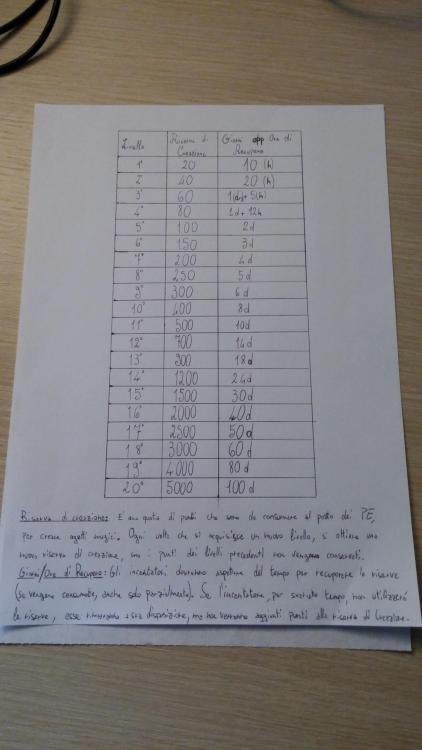 Livello Riserva di Creazione Giorni opp Ore di Recupero
1° 20 10 (h)
2° 40 20 (h)
3° 60 1(d)+ 5(h)
4° 80 1d+ 12h
5° 100 2d
6° 150 3d
7° 200 4d
8° 250 5d
9° 300 6d
10° 400 8d
11° 500 10d
12° 700 14d
13° 900 18d
14° 1200 24d
15° 1500 30d
16° 2000 40d
17° 2500 50d
18° 3000 60d
19° 4000 80d
20° 5000 100d
Riserva di creazione: È una quota di punti che sono da consumare al posto dei PE,
per creare oggetti magici. Ogni volta che si acquisisce un nuovo livello, si ottiene una
nuova riserva di creazione, ma i punti dei livelli precedenti non vengono conservati.
Giorni/Ore di Recupero: Gli incantatori dovranno aspettare del tempo per recuperare le riserve
(se vengono consumate, anche solo parzialmente). Se l'incantatore, per svariato tempo, non utilizzerà
le riserve, esse rimarranno a sua disposizione, ma non verranno aggiunti punti alla riserva di Creazione.